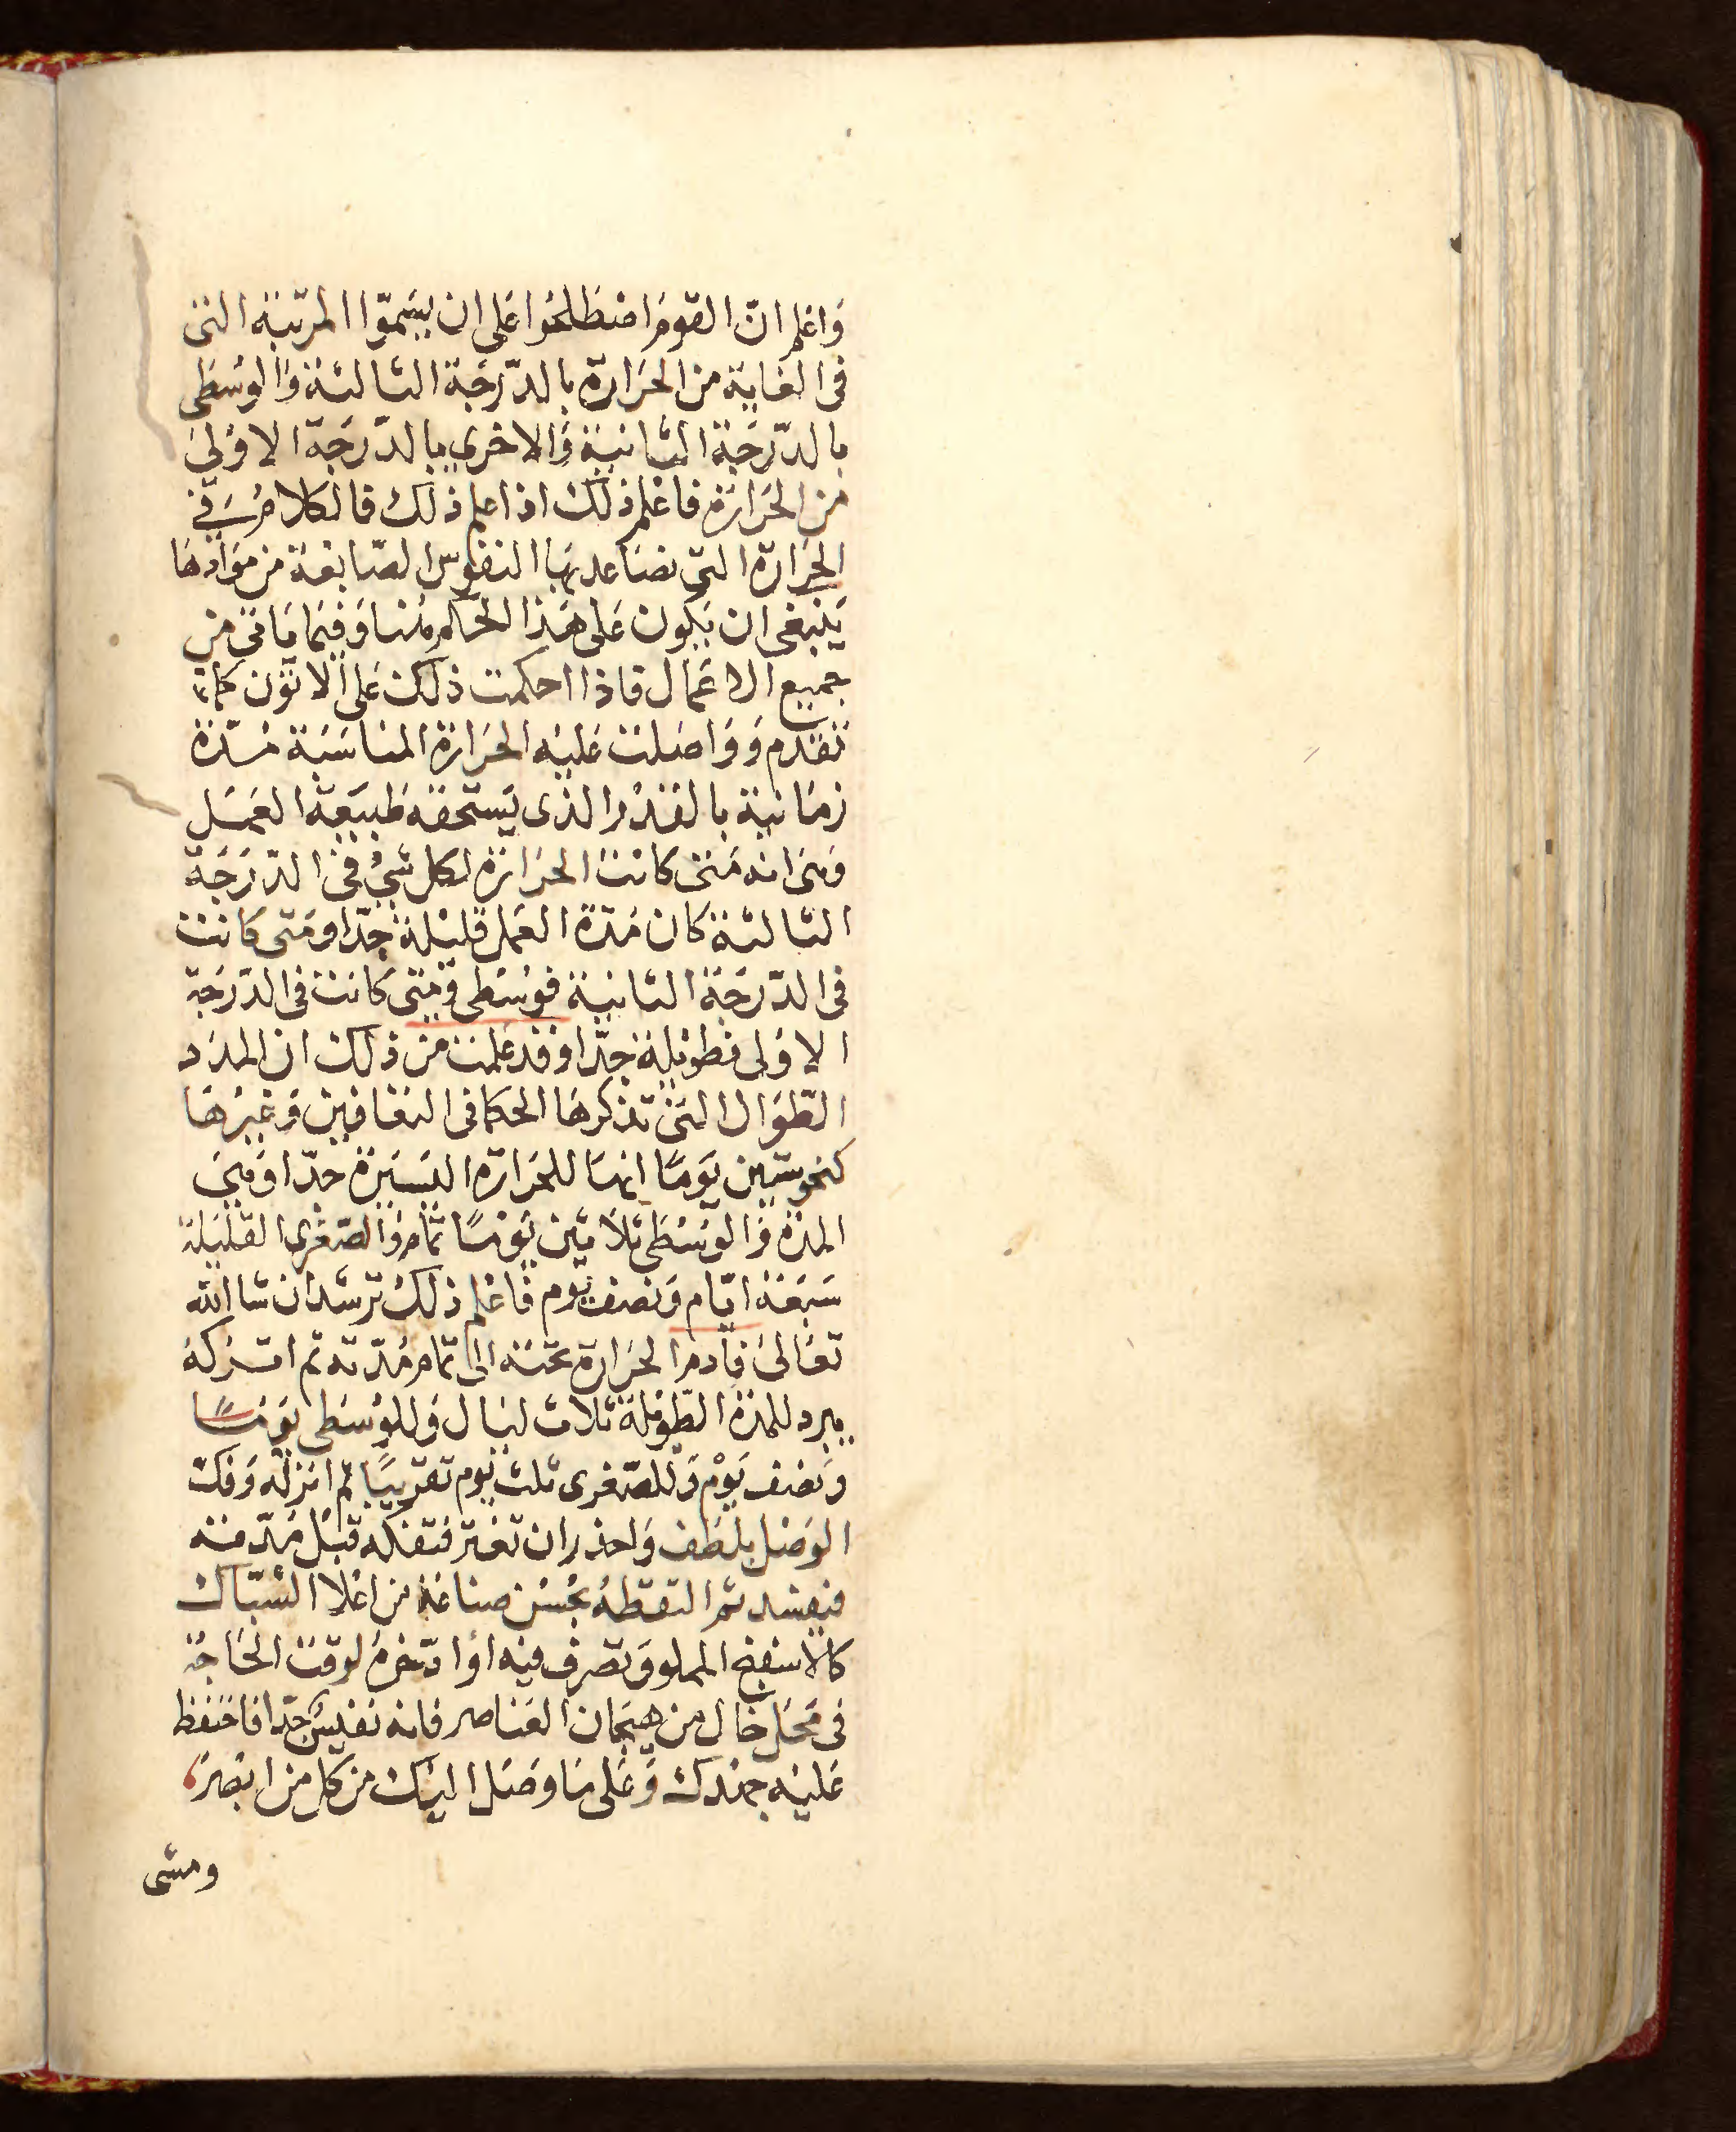 وَاعلم انّ القومَ اصْطَلحُوا عَلى ان يسَمّوا المرتبَة التى
فى الغاية من الحَرارة بالدّرجَة الثالثة وَالوسْطى
بالدّرجَة الثانية وَالاخرى بالدّرجَة الاوْلى
من الحَرارة فاعْلم ذلك اذا علم ذلك فالكلامُ فى
الحَرارة التى تصَاعد بهَا النفوس الصّابغة من موَادهَا
يَنبغى ان يَكون عَلى هَذا الحكم هُنا وَفيمَا يَاتى من
جميع الاعمال فاذا احكمت ذلك عَلى الاتّون كما
تقدم وَوَاصَلت عَليْه الحَرارة المناسَبَة مُدّة
زمَانية بالقدْر الذى يَستحقه طَبيَعة العَمَل
وَهى انه مَتى كانت الحَرارة لكل شَىْ فى الدّرَجَة
الثالثة كان مُدّة العَمل قليْلة جدّا ومَتى كَانت
فى الدّرجَة الثانية فوسْطى وَمتى كَانت فى الدّرَجَة
الاوْلى فطويْلة جدّا وَقد عَلمت من ذلك ان المدَد
الطّوَال التى تذكرهَا الحكما فى التعَافين وَغيْرهَا
كنحو ستين يَومًا انهَا للحَرارة اليَسيَرة جدّا وَهىَ
المدّة وَالوسْطى ثلاثين يَومًا تمام وَالصّغرى القليْلة
سَبعَة ايّام وَنصف يوم فاعْلم ذلك ترشد ان شا الله
تعَالىَ فأدم الحَرارة تحته الى تمام مُدّته ثم اتركه
يبرد للمدّة الطّويْلة ثلاث ليَال وَللوسْطى يَومًا
وَنصف يَوْم وَللصّغرى ثلث يوم تقريبًا ثم انزله وَفكّ
الوَصْل بلطف وَاحذر ان تغتر فتفكه قبْل مدّته
فيفسد ثم التقطهُ بحُسْن صناعَة من اعْلا الشبّاك
كالاسفنج المملو وَتصرف فيه اوْ ادّخرهُ لوقت الحَاجَة
فى مَحَل خال من هيَجان العَناصر فانه نفيسٌ جدّا فاحتفظ
عَليْه جهدك وَعَلى مَا وصَل اليْك من كل من ابْصَر
ومشى